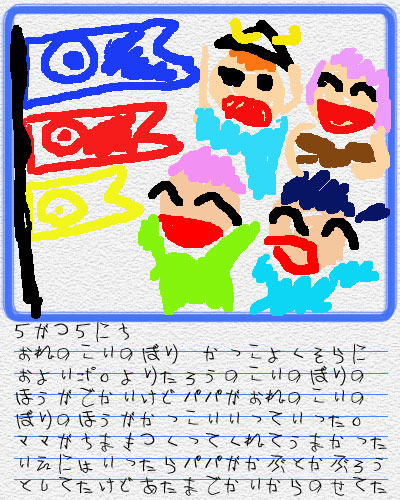 5がつ5にち
おれのこいのぼり かっこよくそらに
およいポ。よりたろうのこいのぼりの
ほうがでかいけどパパがおれのこいの
ぼりのほうがかっこいいっていった。
ママがちまきつくってくれてうまかった
いえにはいったらパパがかぶとかぶろう
としてたけどあたまでかいからのせてた